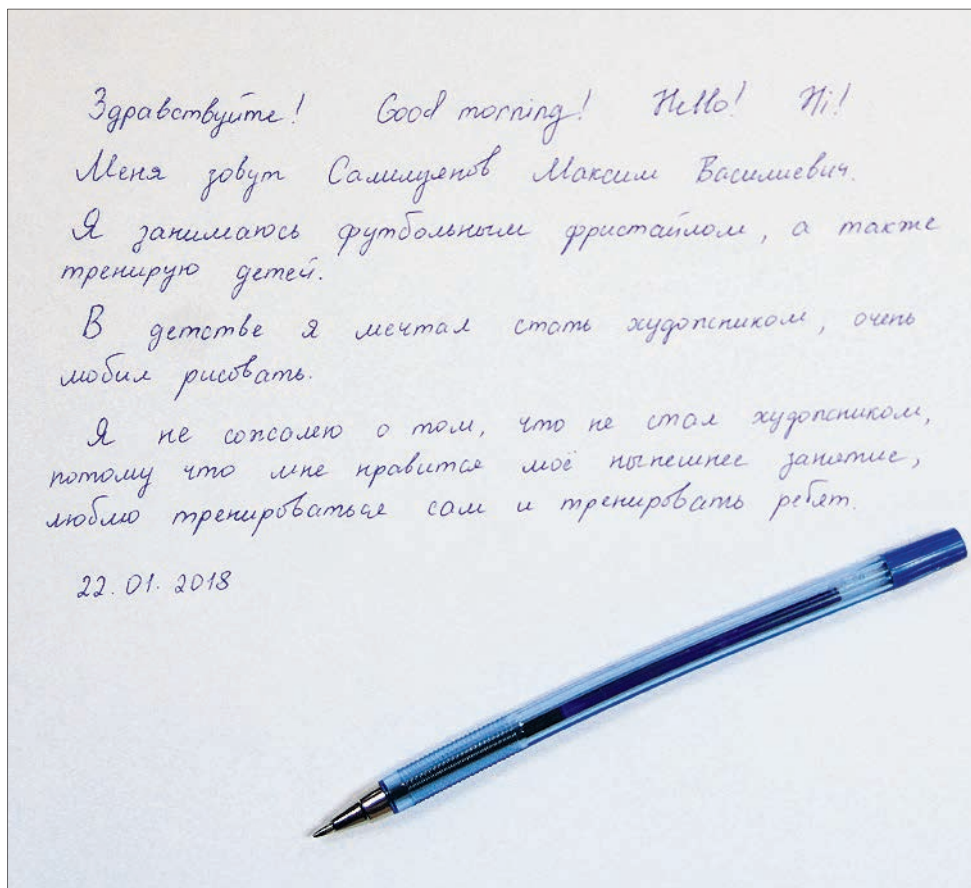 Здравствуйте! Good morning! Hello! Hi!
Меня зовут Максим Василиевич.
Я занимаюсь футбольным фристайлом, а также
тренирую детей.
В детстве я мечтал стать художником, очень
любил рисовать.
Я не сожалею о том, что не стал художником,
потому что мне нравится моё нынешнее занятие,
люблю тренироваться сам и тренировать ребят.
22.01.2018